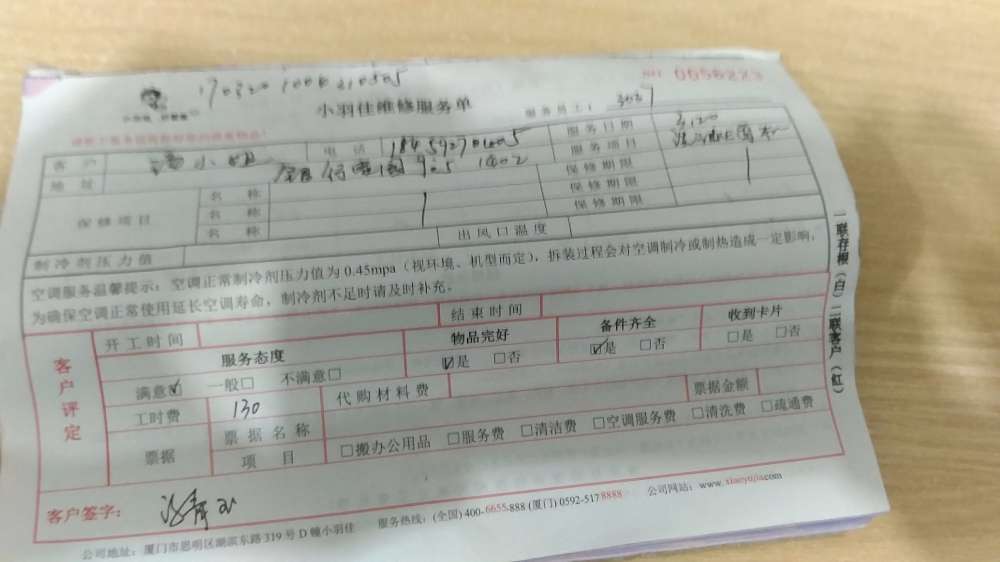 1703201000210505
小羽佳维修服务单
服务员工: 3027
0656223
客户 小姐 电话 服务日期 3.120
地址 905 1402 服务项目
保修项目 名称 保修期限
名称 保修期限
名称 保修期限
制冷剂压力值 出风口温度
空调服务温馨提示:空调正常制冷剂压力值为0.45mpa(视环境、机型而定),拆装过程会对空调制冷或制热造成一定影响,
为确保空调正常使用延长空调寿命,制冷剂不足时请及时补充。
客户评定
开工时间 结束时间
服务态度 物品完好 备件齐全 收到卡片
满意☑ 一般□ 不满意□ ☑是 □否 ☑是 □否 □是 □否
工时费 130 代购材料费 票据金额
票据 票据名称
项目 □搬办公用品 □服务费 □清洁费 □空调服务费 □清洗费 □疏通费
客户签字:
公司地址:厦门市思明区湖滨东路319号D幢小羽佳 服务热线:(全国)400-6655-888 (厦门) 0592-5178888 公司网站:www.xiaoyujia.com
一联存根(白)二联客户(红)